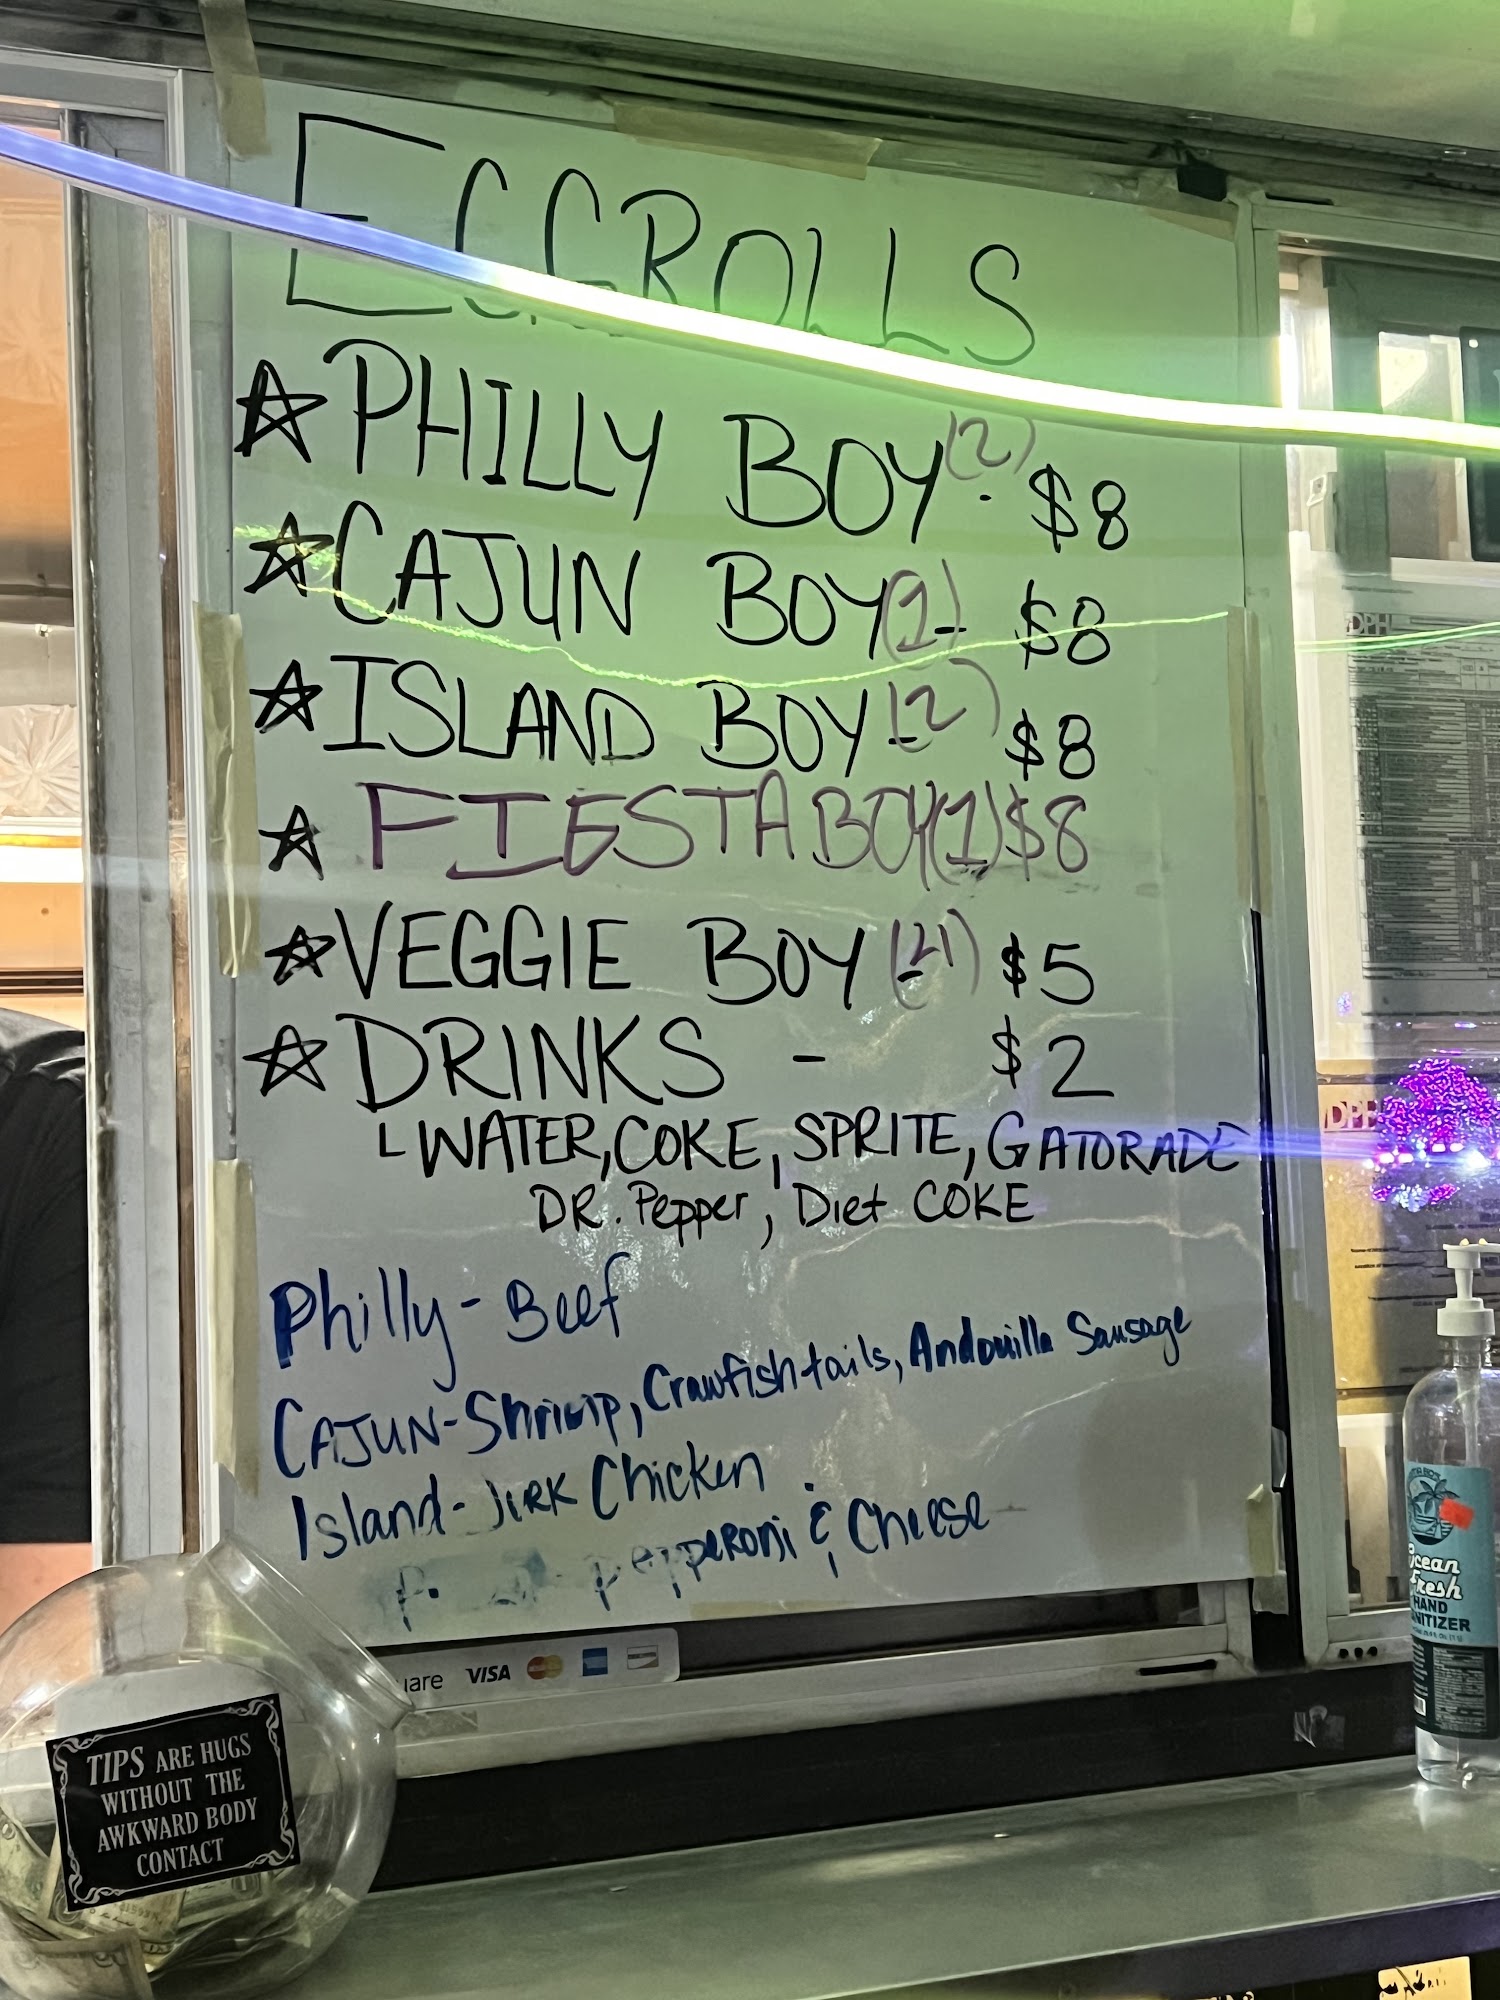 EGGROLLS
PHILLY BOY (2) - $8
CAJUN BOY (1) - $8
ISLAND BOY - (2) $8
FIESTA BOY (1) $8
VEGGIE BOY - $5
DRINKS - $2
WATER, COKE, SPRITE, GATORADE
DR. Pepper, Diet COKE
Philly - Beef
CAJUN - Shrimp, Crawfish tails, Andouille Sausage
Island - JERK Chicken
pepperoni & Cheese
VISA
TIPS ARE HUGS
WITHOUT THE
AWKWARD BODY
CONTACT
DPH
DPH
Ocean
Fresh
HAND
SANITIZER